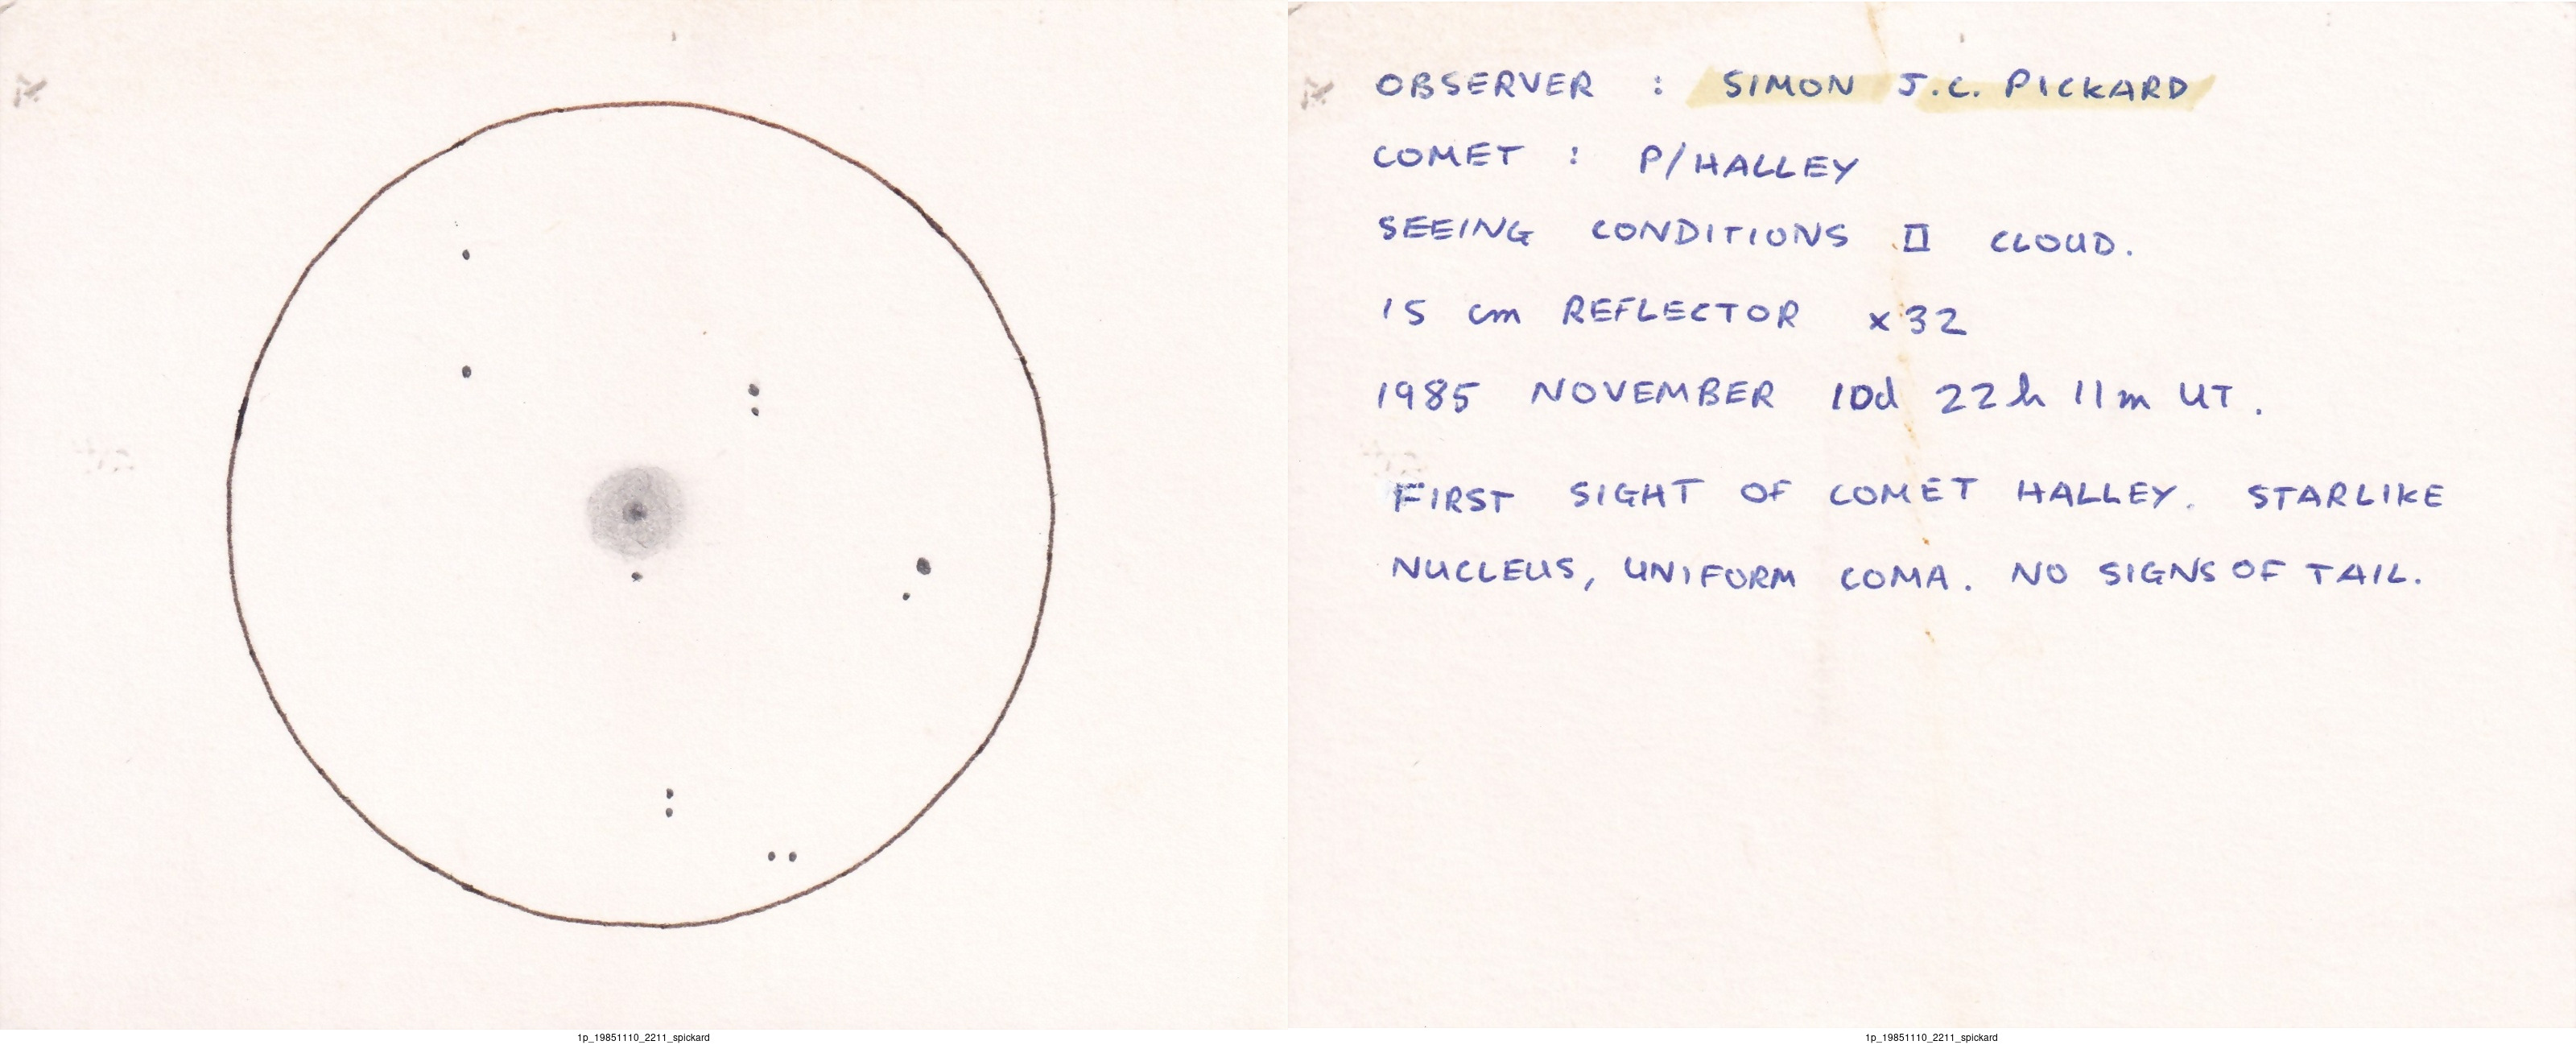 OBSERVER : SIMON J.C. PICKARD
COMET : P/HALLEY
SEEING CONDITIONS II CLOUD.
15 cm REFLECTOR x32
1985 NOVEMBER 10d 22h 11m UT.
FIRST SIGHT OF COMET HALLEY. STARLIKE
NUCLEUS, UNIFORM COMA. NO SIGNS OF TAIL.
1p_19851110_2211_spickard
1p_19851110_2211_spickard